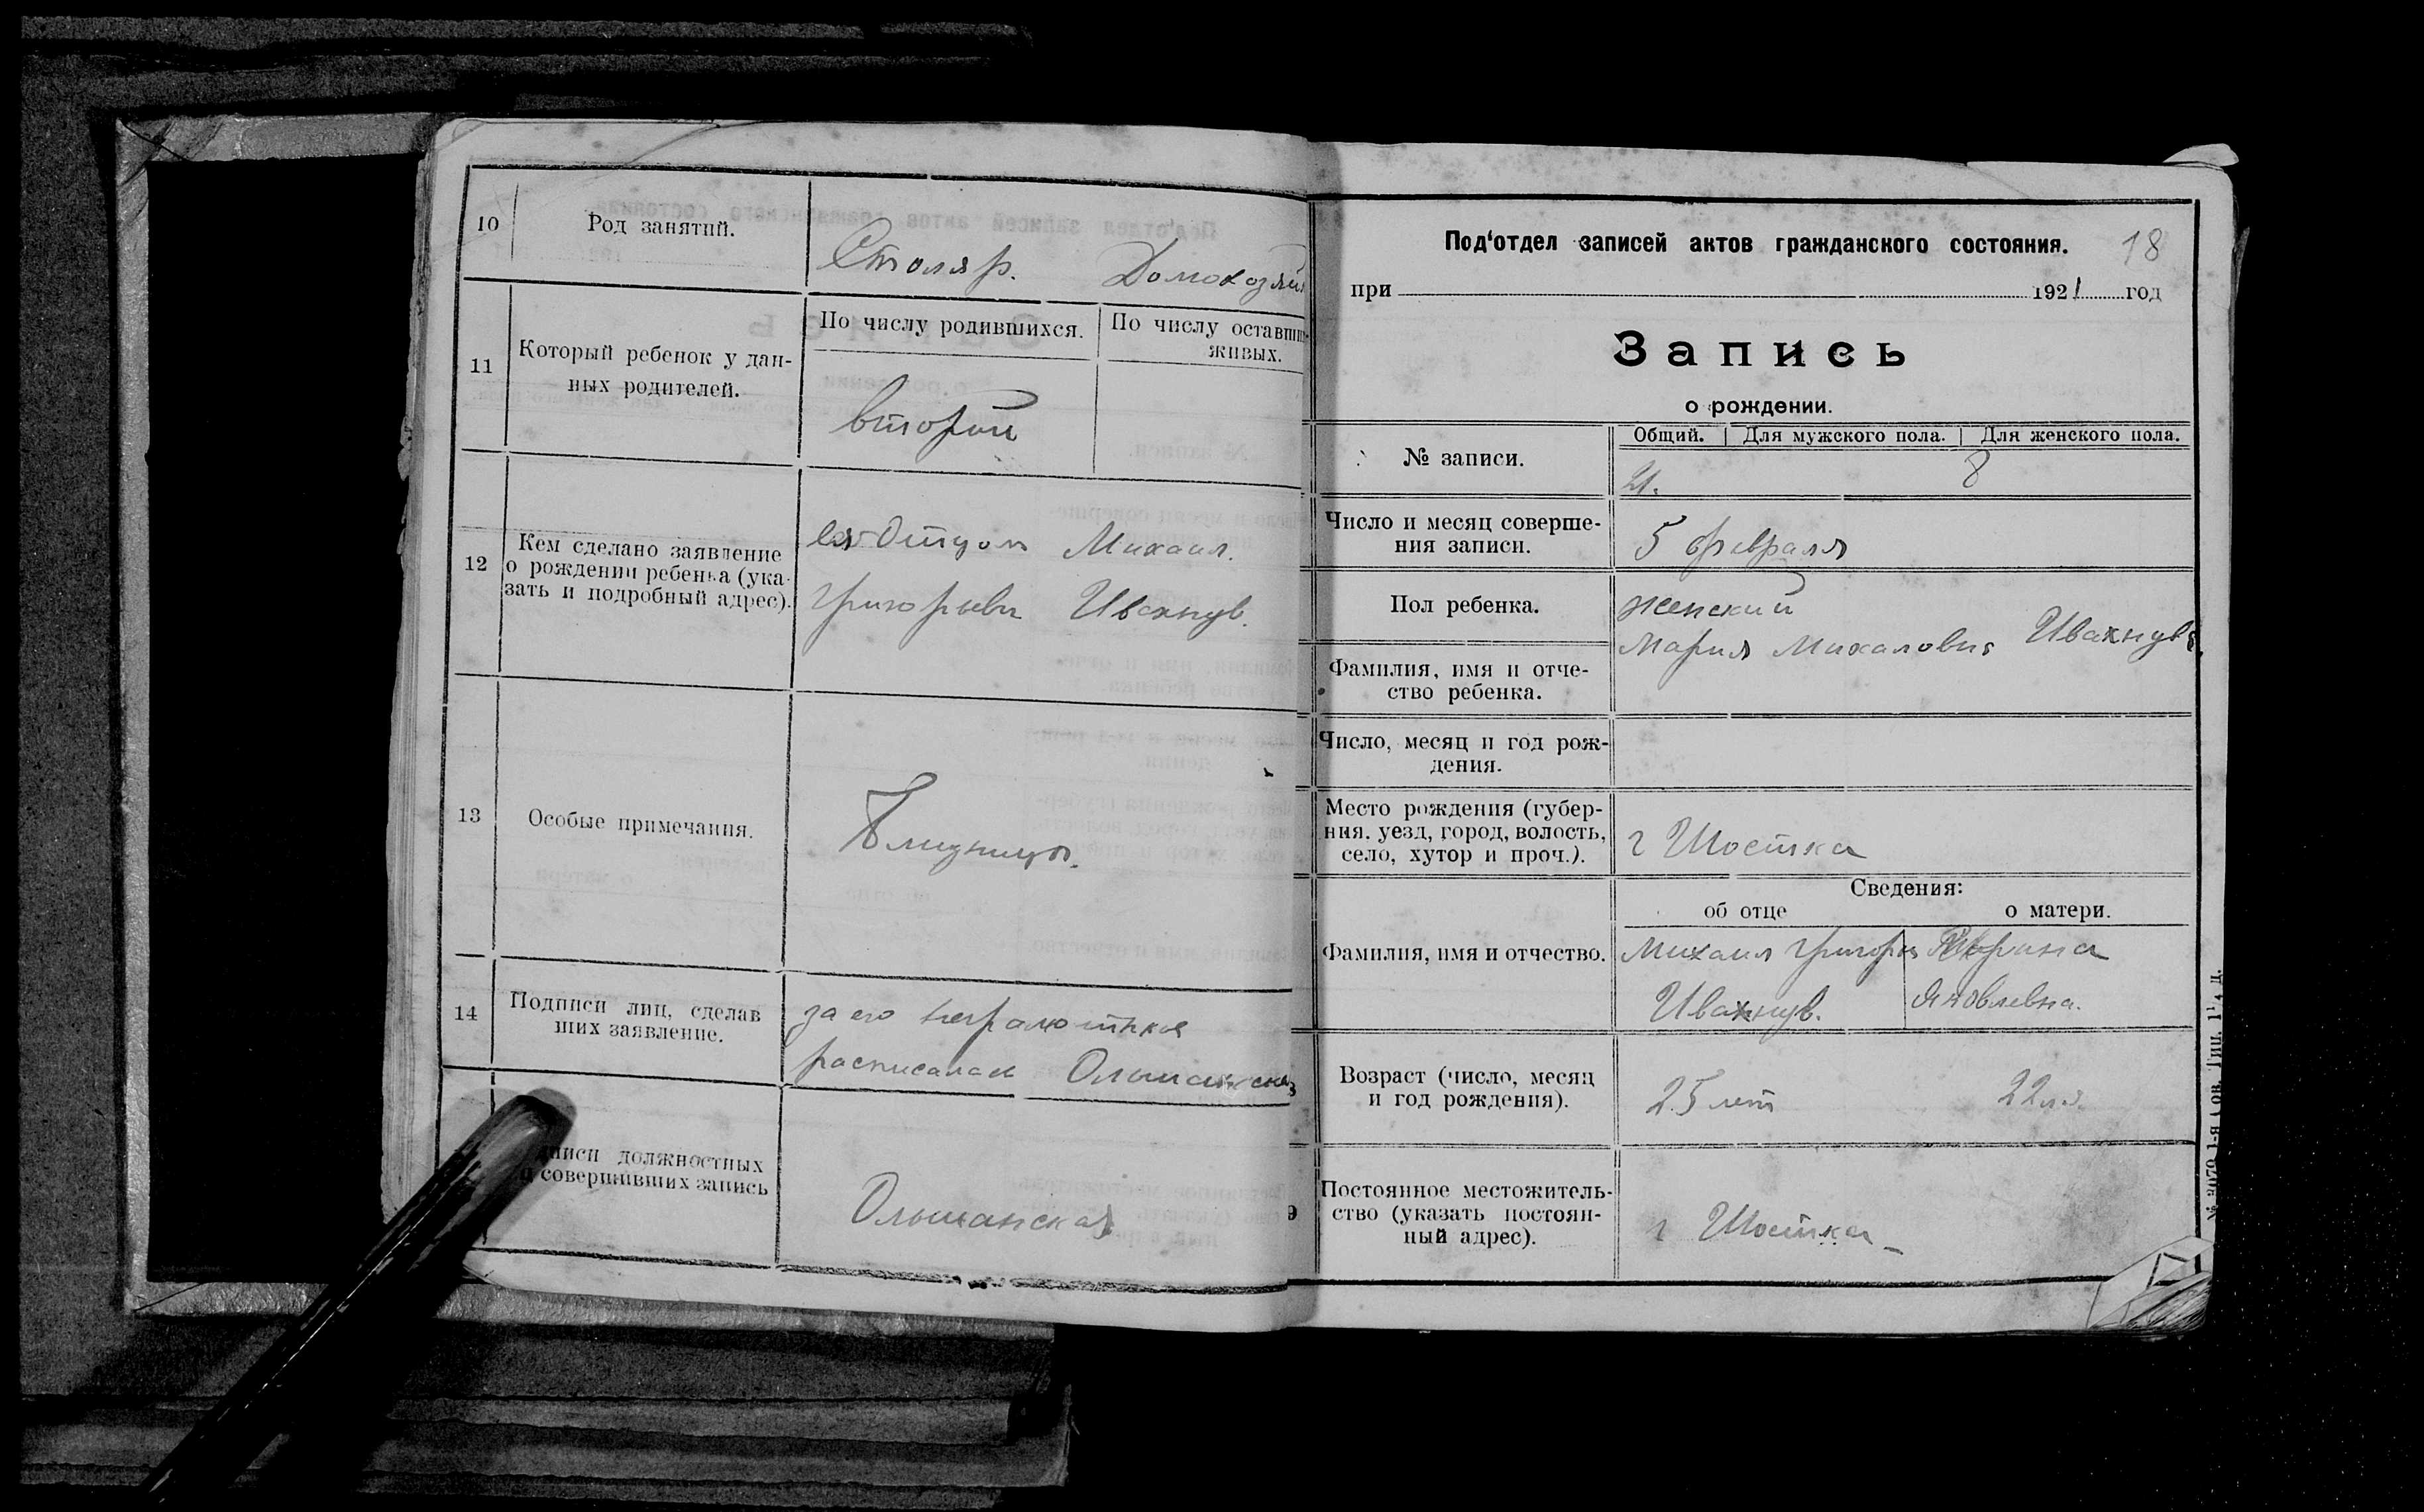 10 Род занятий. Столяр. Домохозяй
11 Который ребенок у дан-
ных родителей.
По числу родившихся. По числу оставши
живых.
второй
12 Кем сделано заявление
о рождении ребенка (ука-
зать и подробный адрес).
отцом Михаил.
Григорьеви Ивахнув.
13 Особые примечания. Близницы.
14 Подписи лиц, сделав
ших заявление.
за его неграмотная
расписалась Ольшанская
должностных
совершивших запись
Ольшанская
Под‘отдел записей актов гражданского состояния. 18
при 1921 год
Запись
о рождении.
№ записи.
Общий. Для мужского пола. Для женского пола.
21. 8
Число и месяц соверше-
ния записи.
5 февраля
Пол ребенка. женский
Фамилия, имя и отче-
ство ребенка.
Мария Михаловна Ивахнув
Число, месяц и год рож-
дения.
Место рождения (губер-
ния. уезд, город, волость,
село, хутор и проч.).
г Шостка
Сведения:
об отце о матери.
Фамилия, имя и отчество.
Михаил Григори
Ивахнув.
Яковлевна.
Возраст (число, месяц
и год рождения).
25 лет 22
9 Постоянное местожитель-
ство (указать постоян-
ный адрес).
г Шостка